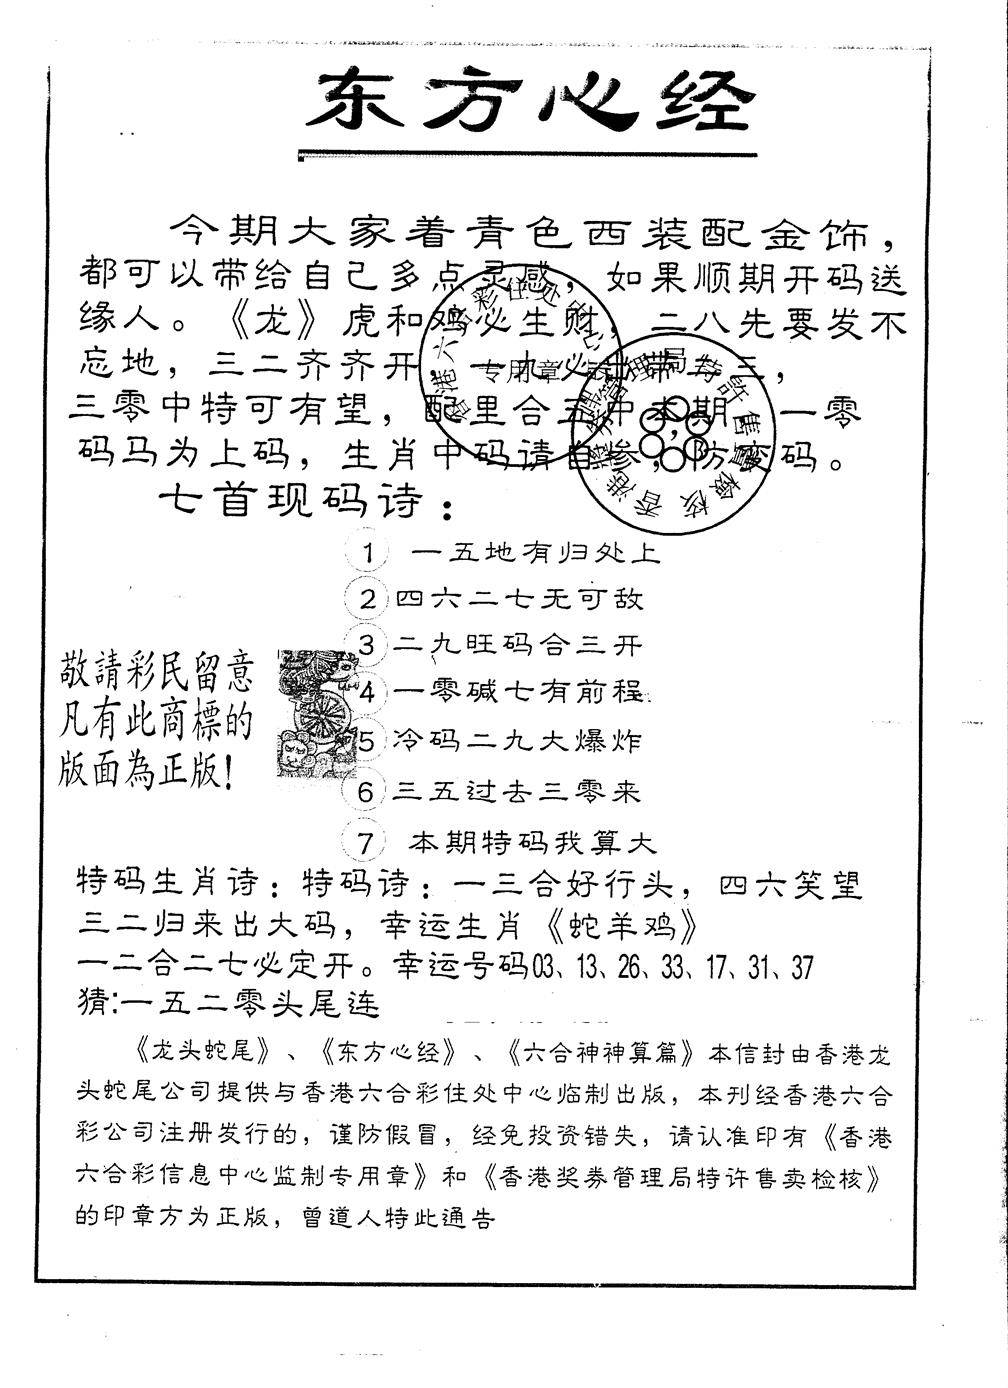 东方心经
今期大家着青色西装配金饰，
都可以带给自己多点灵感，如果顺期开码送
缘人。《龙》虎和鸡必生财，二八先要发不
忘地，三二齐齐开，一九必出带一三，
三零中特可有望，配里合五中本期，一零
码马为上码，生肖中码请自参，防 码。
七首现码诗：
1 一五地有归处上
2 四六二七无可敌
3 二九旺码合三开
4 一零碱七有前程
5 冷码二九大爆炸
6 三五过去三零来
7 本期特码我算大
敬請彩民留意
凡有此商標的
版面為正版!
特码生肖诗：特码诗：一三合好行头，四六笑望
三二归来出大码，幸运生肖《蛇羊鸡》
一二合二七必定开。幸运号码03、13、26、33、17、31、37
猜:一五二零头尾连
《龙头蛇尾》、《东方心经》、《六合神神算篇》本信封由香港龙
头蛇尾公司提供与香港六合彩住处中心临制出版，本刊经香港六合
彩公司注册发行的，谨防假冒，经免投资错失，请认准印有《香港
六合彩信息中心监制专用章》和《香港奖券管理局特许售卖检核》
的印章方为正版，曾道人特此通告
香港六合彩住处中心
专用章
香港獎券管理局特許售賣檢核